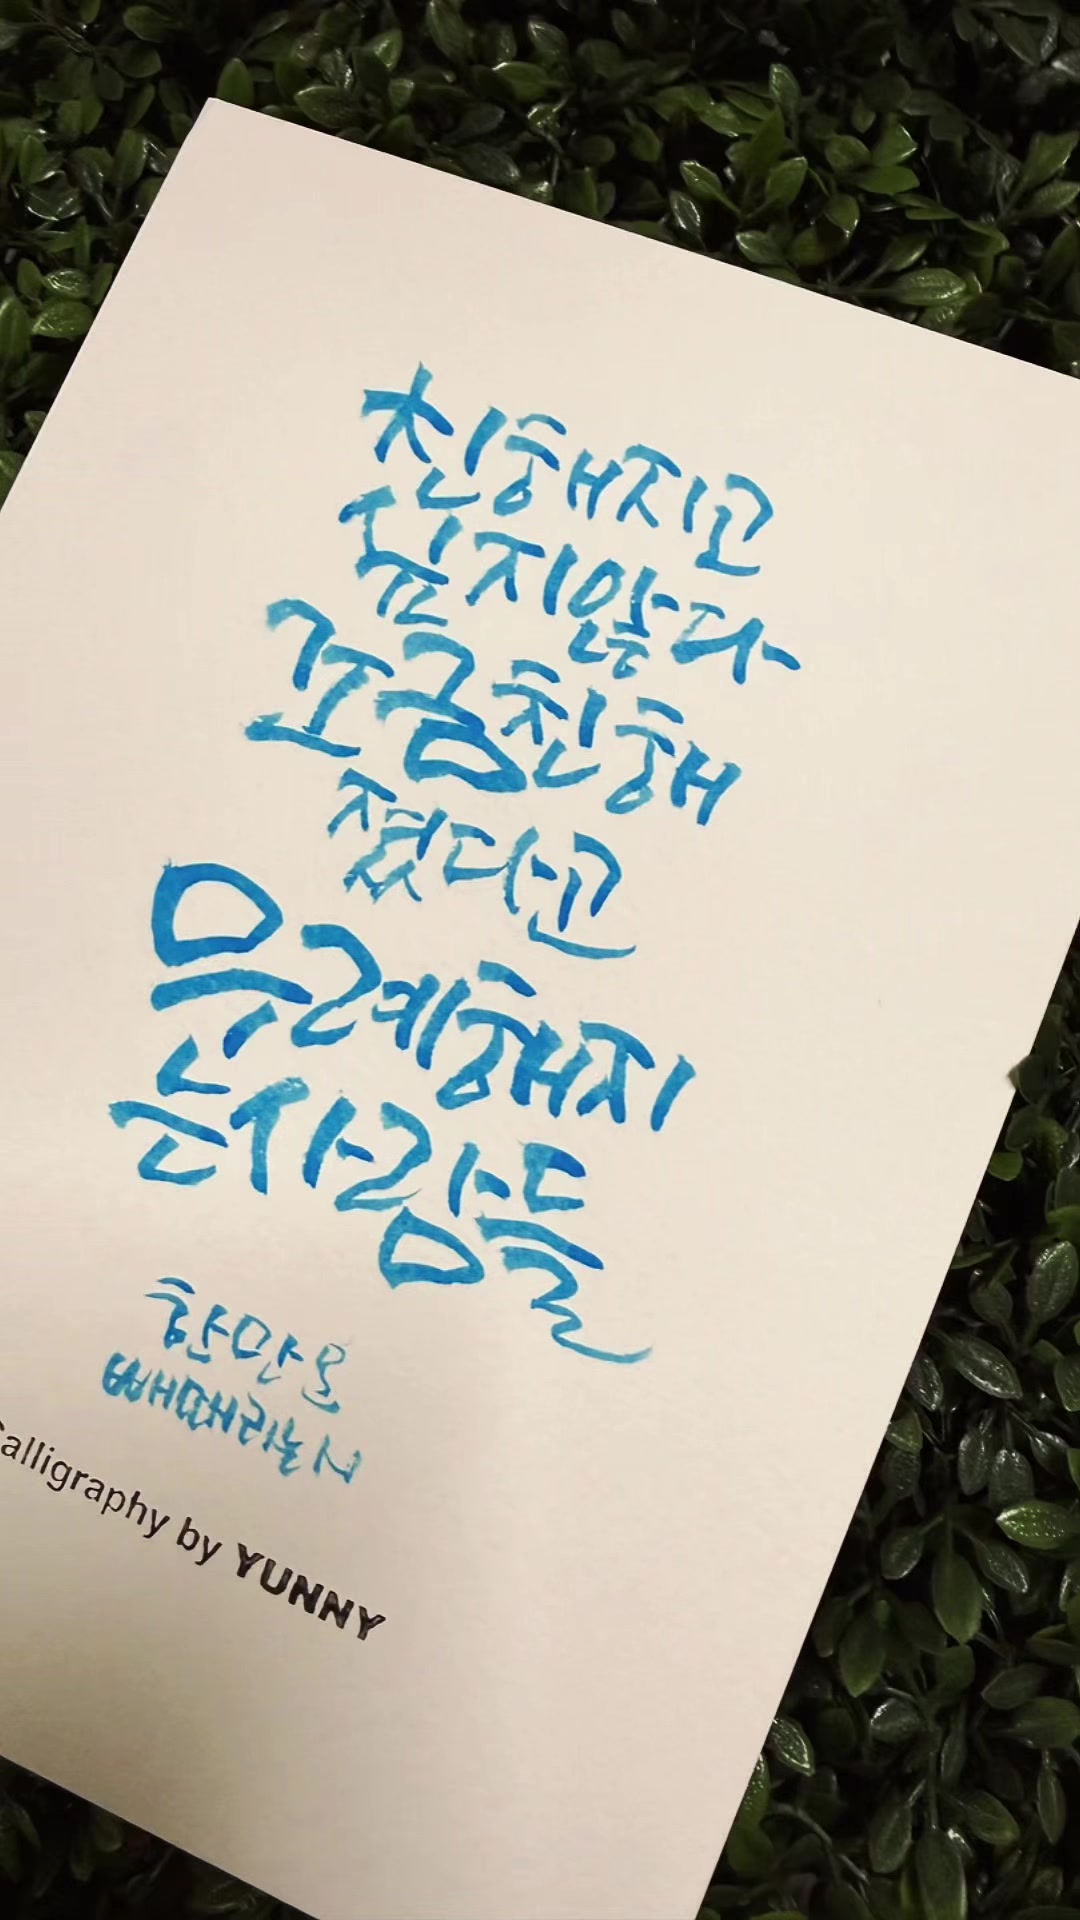 친해지고
싶지않다
조금친해
졌다고
무례해지
는사람들
한마을
빼때리는시
Calligraphy by YUNNY